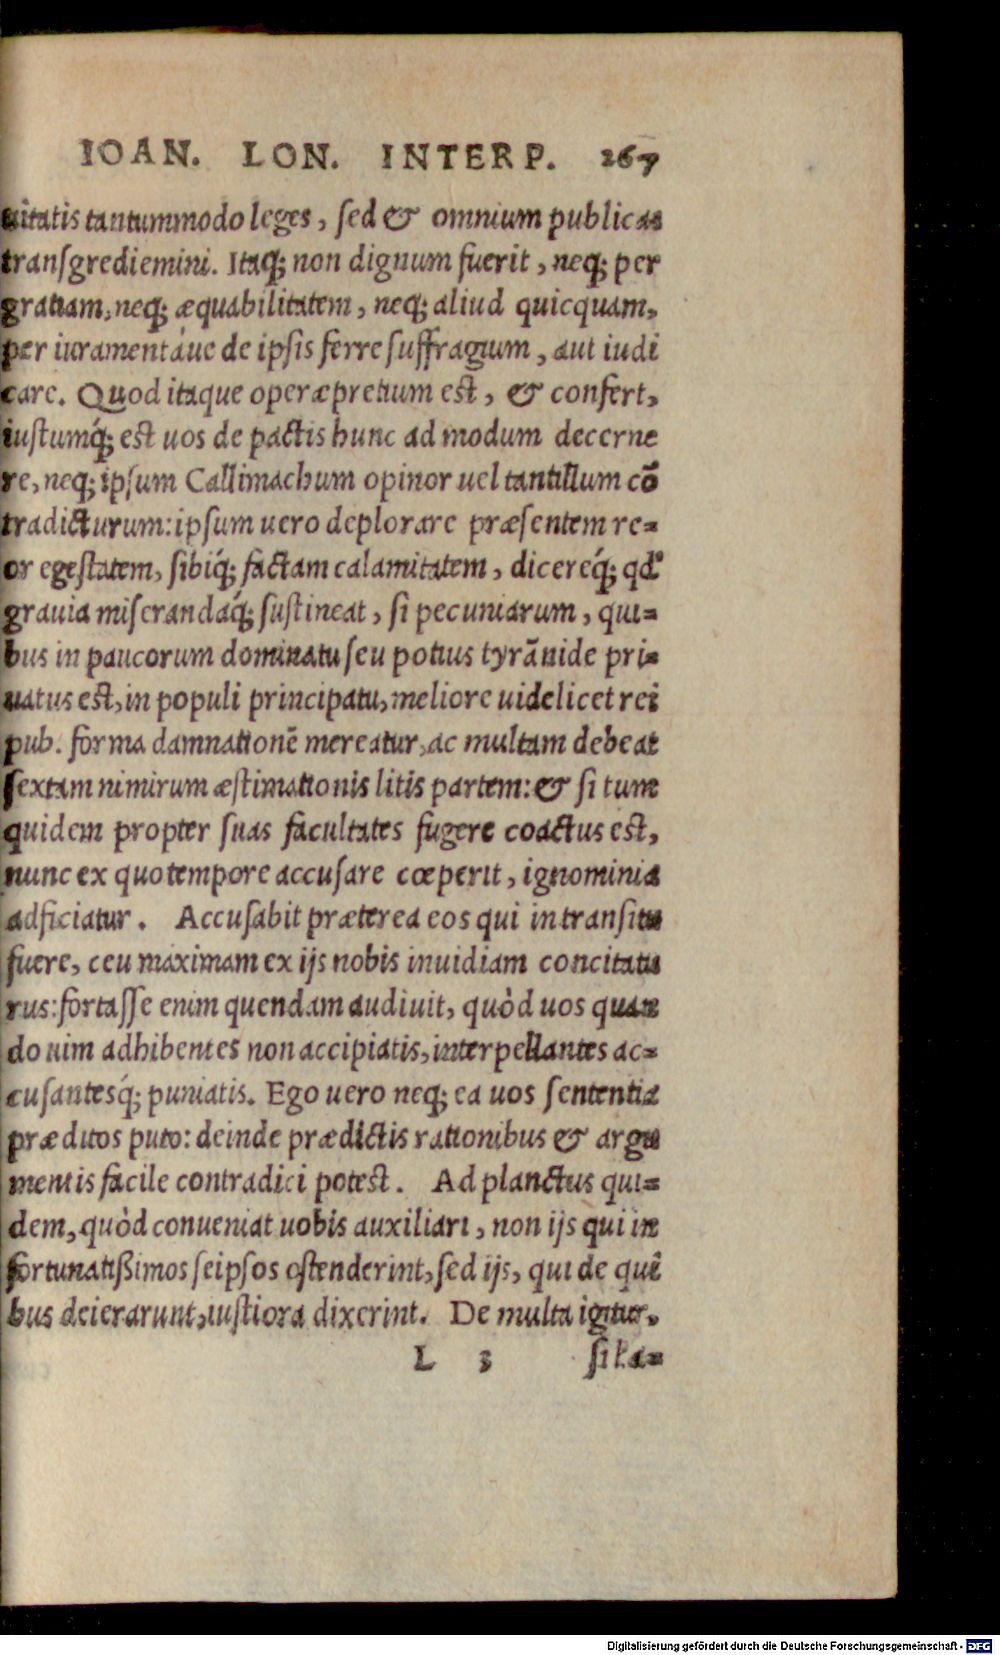 IOAN. LON. INTERP. 267
uitatis tantummodo leges, sed & omnium publicas
transgrediemini. Itaq; non dignum fuerit, neq; per
gratiam, neq; æquabilitatem, neq; aliud quicquam,
per iuramentáue de ipsis ferre suffragium, aut iudi
care. Quod itaque operæpretium est, & confert,
iustumq́; est uos de pactis hunc ad modum decerne
re, neq; ipsum Callimachum opinor uel tantillum cō
tradicturum: ipsum uero deplorare præsentem re=
or egestatem, sibiq́; factam calamitatem, dicereq́; qd'
grauia miserandaq́; sustineat, si pecuniarum, qui=
bus in paucorum dominatu seu potius tyrānide pri=
uatus est, in populi principatu, meliore uidelicet rei
pub. forma damnationē mereatur, ac multam debeat
sextam nimirum æstimationis litis partem: & si tum
quidem propter suas facultates fugere coactus est,
nunc ex quo tempore accusare cœperit, ignominia
adficiatur. Accusabit præterea eos qui in transitu
fuere, ceu maximam ex ijs nobis inuidiam concitatu
rus: fortasse enim quendam audiuit, quòd uos quan
do uim adhibentes non accipiatis, interpellantes ac=
cusantesq́; puniatis. Ego uero neq; ea uos sententia
præditos puto: deinde prædictis rationibus & argu
mentis facile contradici potest. Ad planctus qui=
dem, quòd conueniat uobis auxiliari, non ijs qui in
fortunatißimos seipsos ostenderint, sed ijs, qui de qui
bus deierarunt, iustiora dixerint. De multa igitur,
L 3 si ha=
Digitalisierung gefördert durch die Deutsche Forschungsgemeinschaft - DFG